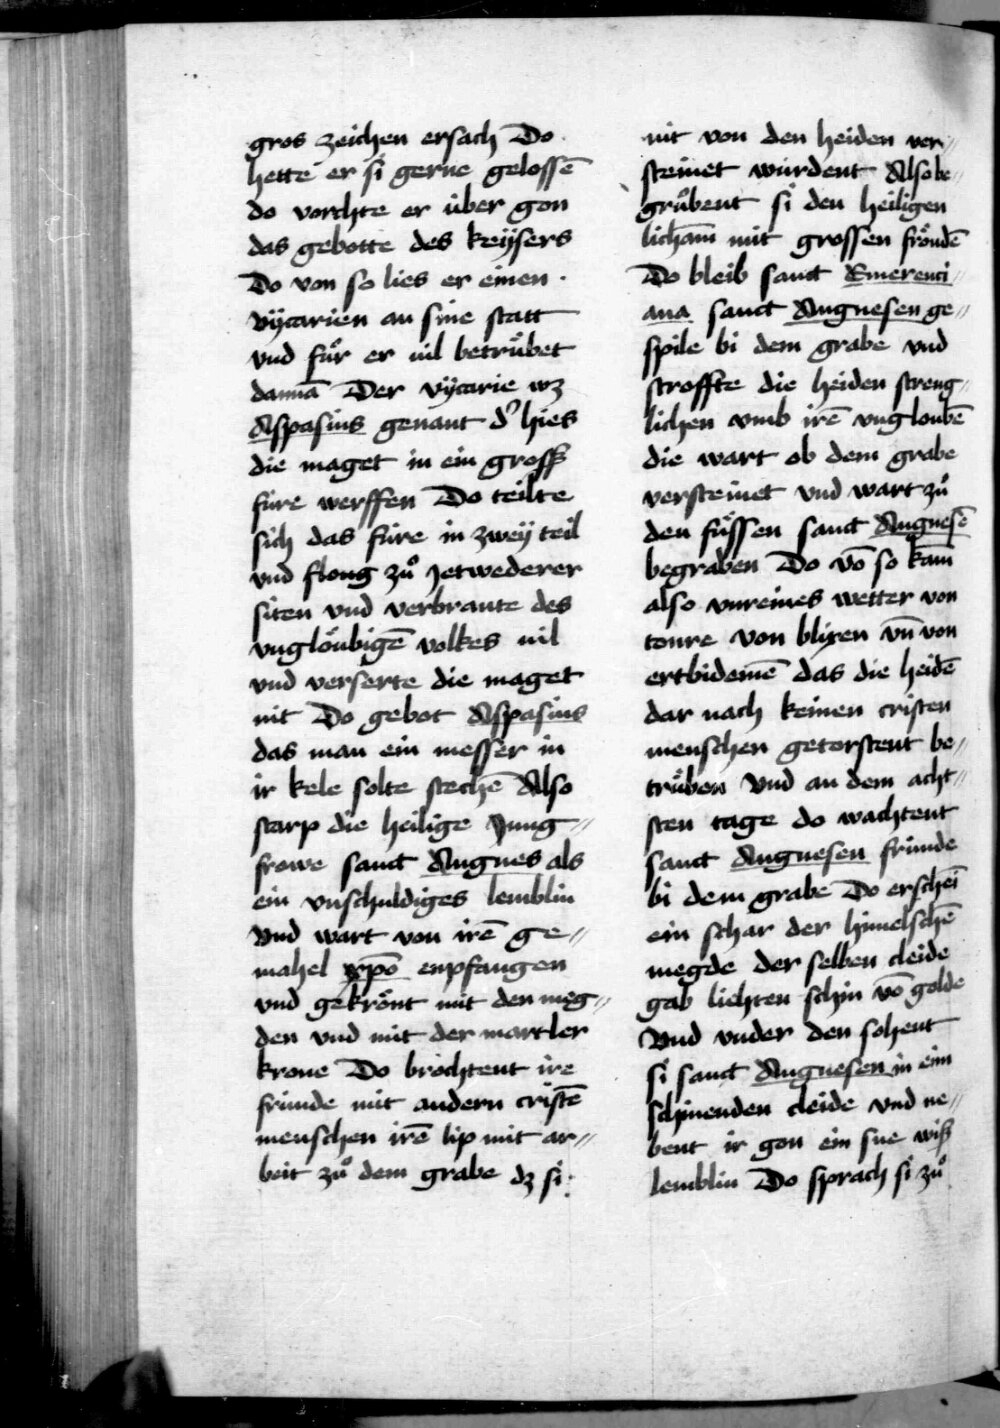 gros zeichen ersach Do
hette er si gerne gelossē
do vorchte er über gon
das gebotte des keÿsers
Do von so lies er einen
vÿcarien an sine statt
vnd fuͦr er vil betruͤbet
dannā Der vÿcarie wz
Aspasius genant dˀ hies
die maget in ein gross
füre werffen Do teilte
sich das füre in zweÿ teil
vnd floug zuͦ Jetwederer
siten vnd verbrante des
vngloͤubigē volkes vil
vnd verserte die maget
nit Do gebot Aspasius
das man ein messer in
ir kele solte stechē Also
starp die heilige Jung〃
frowe sanct Angnes als
ein vnschuldiges lemblin
Vnd wart von irē ge〃
mahel xp̄o enpfangen
vnd gekroͤnt mit den meg〃
den vnd mit der martler
krone Do brochtent ire
fründe mit andern cristē
menschen irē lip mit ar〃
beit zuͦ dem grabe dz si
nit von den heiden ver〃
steinet würdent Also be〃
gruͦbent si den heiligen
licham̄ mit grossen froͤudē
Do bleib sanct Emerenci〃
ana sanct Angnesen ge〃
spile bi dem grabe vnd
stroffte die heiden streng〃
lichen vmb irē vngloubē
die wart ob dem grabe
versteinet vnd wart zuͦ
den fuͤssen sanct Angnesē
begraben Do vō so kam
also vnreines wetter von
tonre von blixen vn̄ von
ertbidemē das die heidē
dar nach keinen cristen
menschen getorstent be〃
truͤben Vnd an dem acht〃
sten tage do wachtent
sanct Angnesen fründe
bi dem grabe Do erschei
ein schar der himelschē
megde der selben cleide
gab liechten schin vō golde
Vnd vnder den sohent
si sanct Angnesen in eim
schinenden cleide vnd ne〃
bent ir gon ein sne wiß
lemblin Do sprach si zuͦ